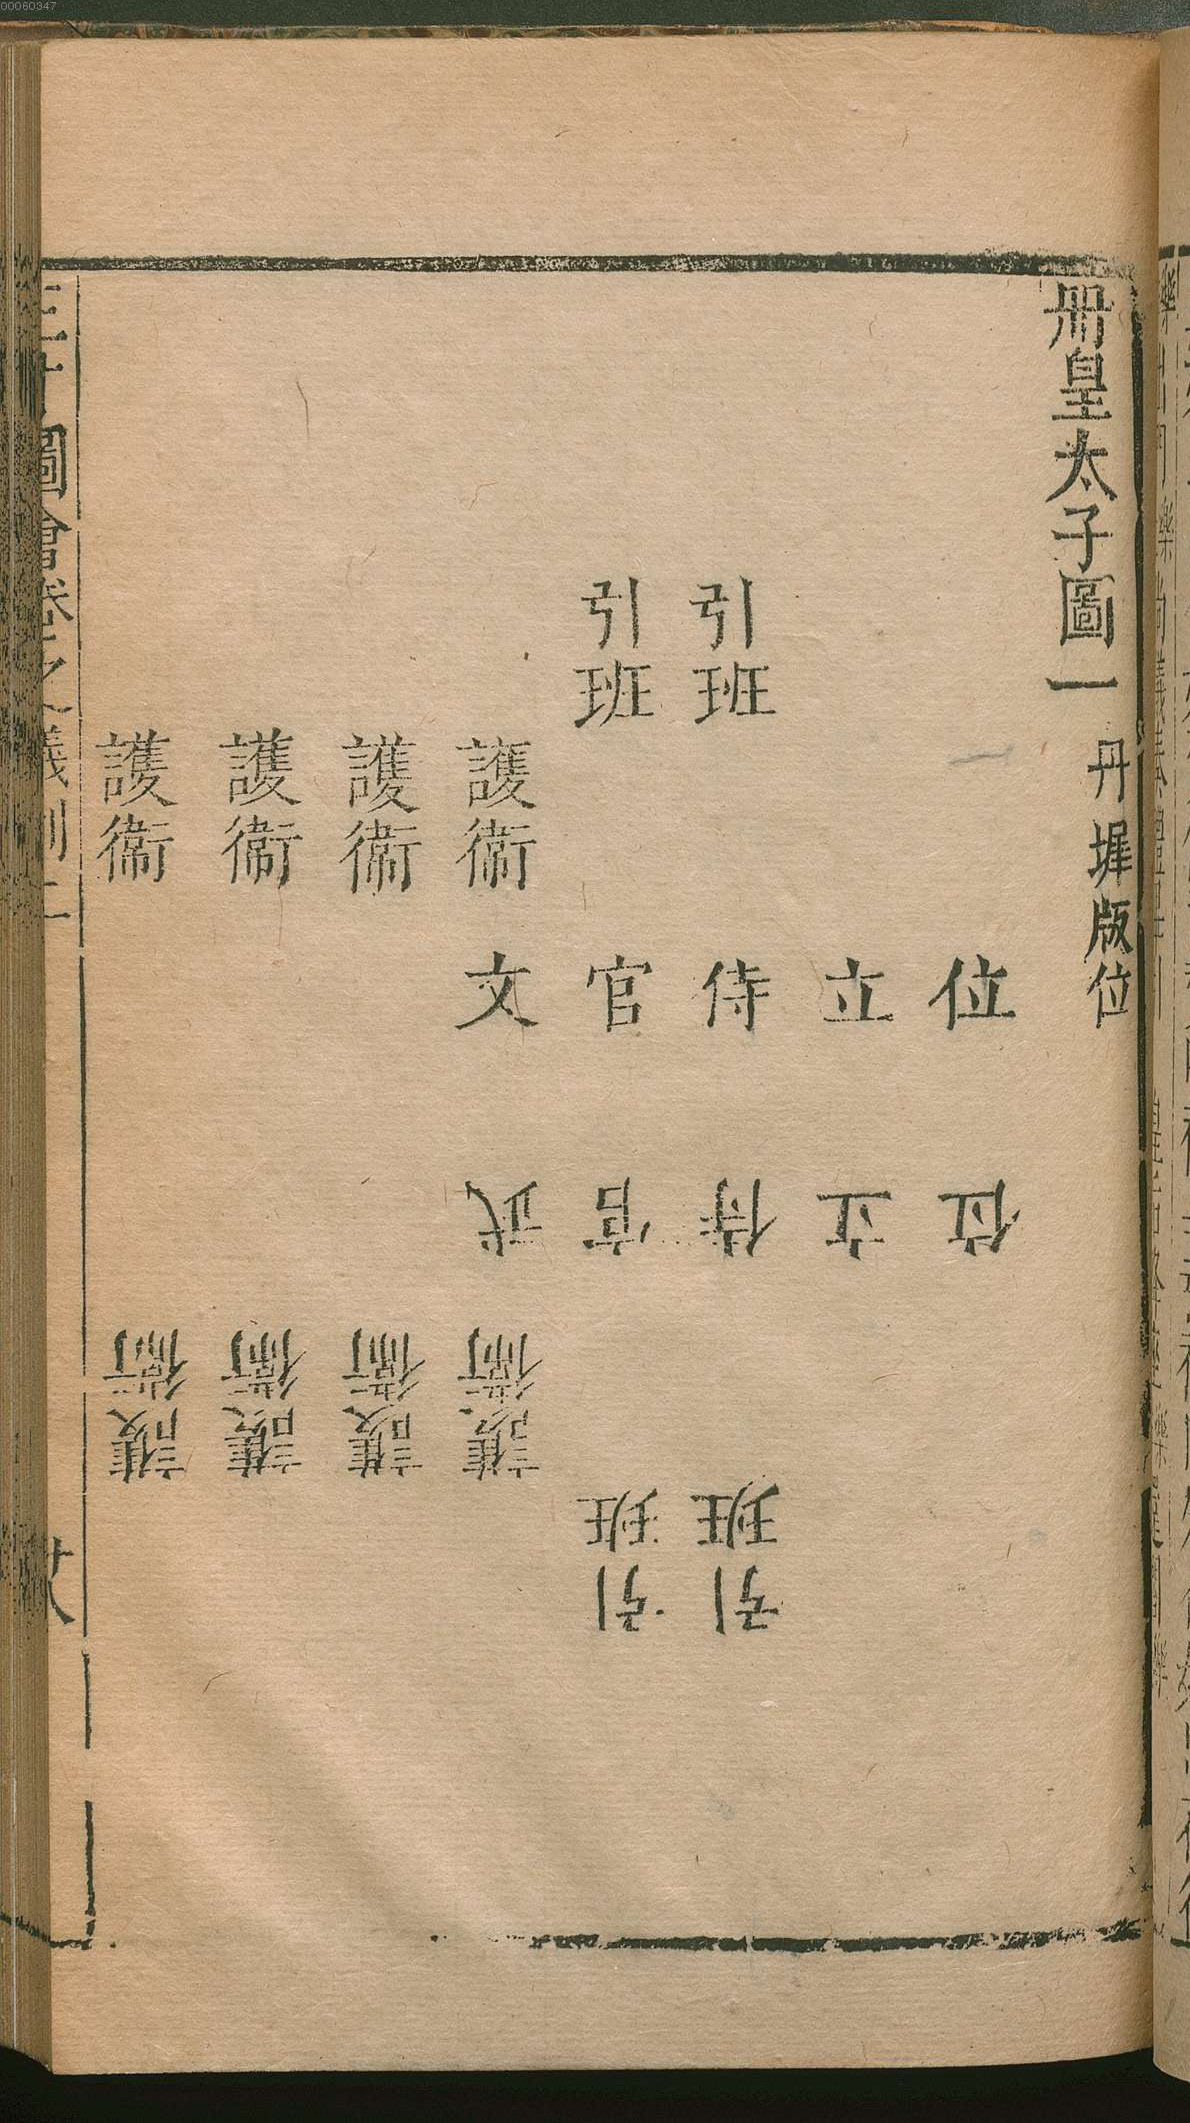 00060347
冊皇太子圖一 丹墀版位
引班
引班
護衛
護衛
護衛
護衛
位立侍官文
位立侍官武
護衛
護衛
護衛
護衛
引班
引班
圖會